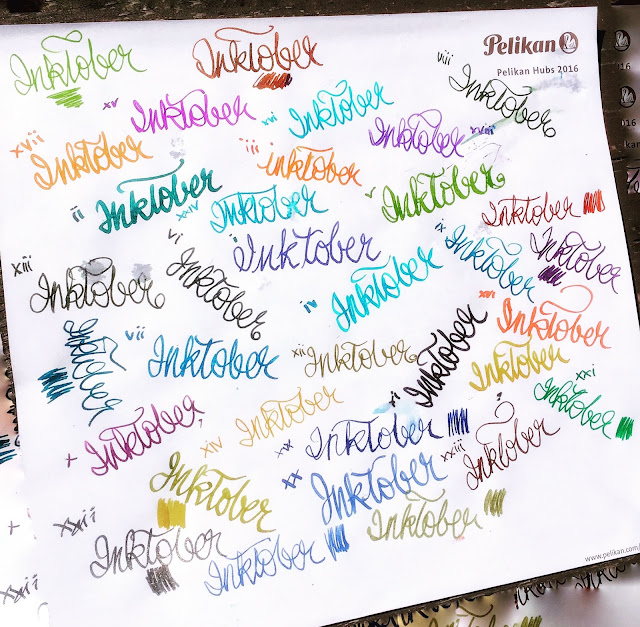 Inktober
Inktober
Pelikan
Pelikan Hubs 2016
016
xv Inktober
xvi Inktober
viii Inktober
xvii Inktober
iii inktober
Inktober xviii
016
ii Inktober
Inktober
v Inktober
Inktober
i Inktober
ix Inktober
Inktober
xiii Inktober
vi Inktober
iv Inktober
xvi Inktober
Inktober
vii Inktober
xii Inktober
xi Inktober
Inktober
xxi Inktober
x Inktober
xiv Inktober
xx Inktober
xxiii Inktober
Inktober
xx Inktober
Inktober
xxii Inktober
Inktober
www.pelikan.com/
xxii